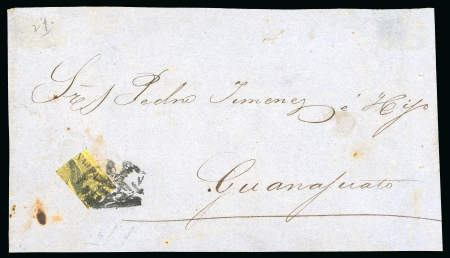 Sres Pedro Jimenez é Hijo
Guanajuato